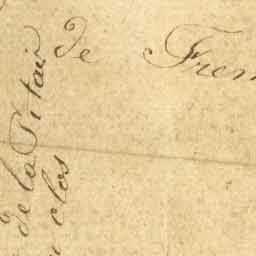 de Fren
de la Pitau
clos